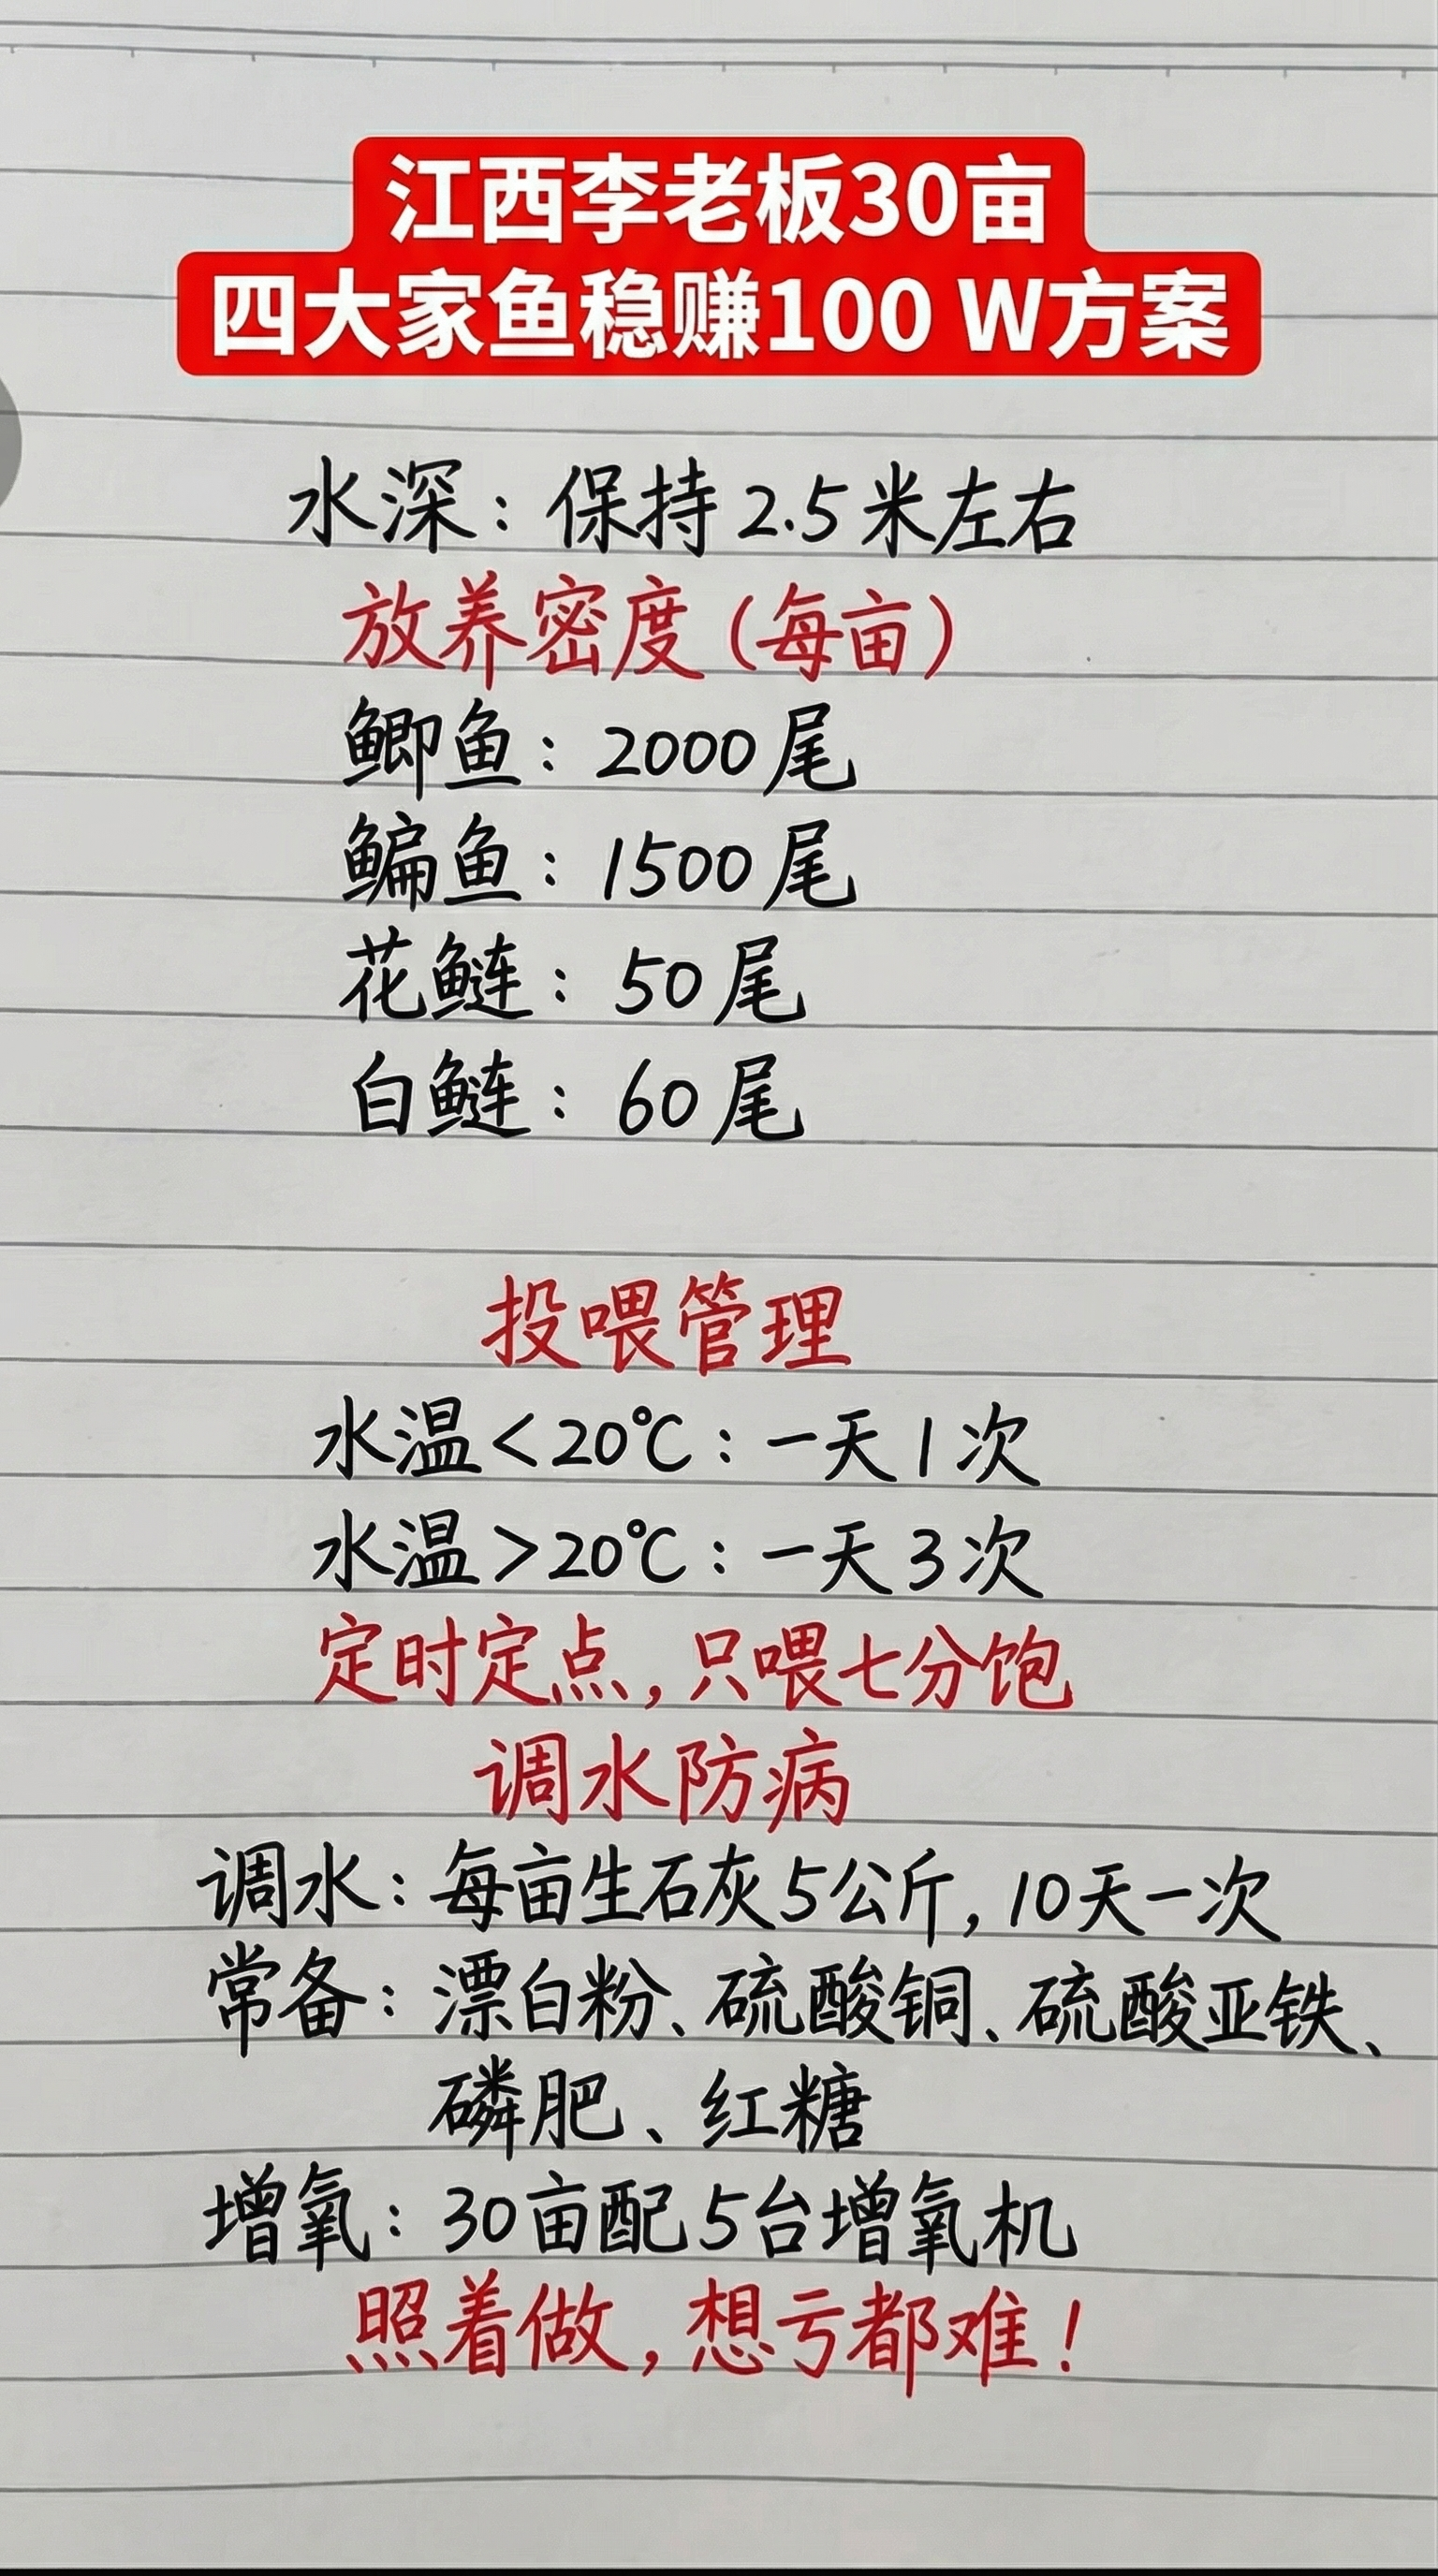 江西李老板30亩
四大家鱼稳赚100 W方案
水深：保持2.5米左右
放养密度（每亩）
鲫鱼：2000尾
鳊鱼：1500尾
花鲢：50尾
白鲢：60尾
投喂管理
水温<20℃：一天1次
水温>20℃：一天3次
定时定点，只喂七分饱
调水防病
调水：每亩生石灰5公斤，10天一次
常备：漂白粉、硫酸铜、硫酸亚铁、
磷肥、红糖
增氧：30亩配5台增氧机
照着做，想亏都难！